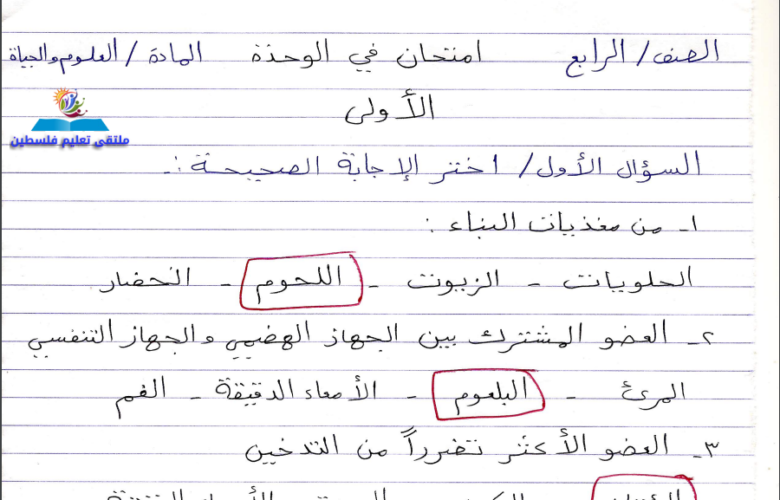 الصف / الرابع امتحان في الوحدة المادة / العلوم والحياة
الأولى
ملتقى تعليم فلسطين
السؤال الأول / اختر الإجابة الصحيحة :-
١- من مغذيات البناء :
الحلويات - الزيوت - اللحوم - الخضار
٢- العضو المشترك بين الجهاز الهضمي والجهاز التنفسي
المرئ - البلعوم - الأمعاء الدقيقة - الفم
٣- العضو الأكثر تضرراً من التدخين